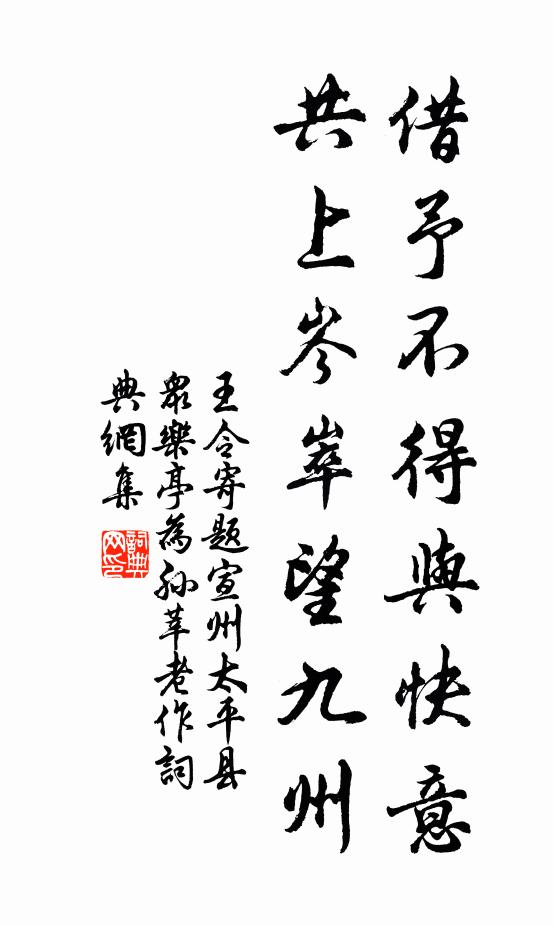 借予不得與快意
共上岑崒望九州
王令寄題宣州太平县
眾樂亭為孙莘老作詞
典網集
詞典网印